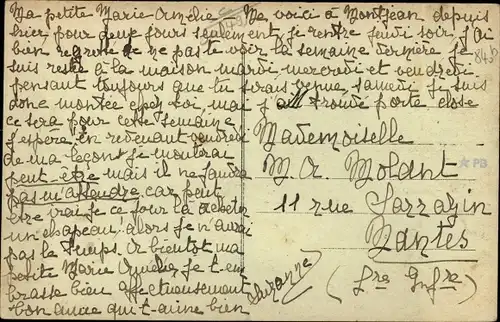 Ma petite Marie Amélie Me voici à Montjean depuis
hier, pour deux jours seulement, je rentre jeudi soir, j'ai
bien regretté de ne pas te voir la semaine dernière je
suis resté à la maison mardi, mercredi et vendredi
pensant toujours que tu serais venue, samedi je suis
donc montée chez toi, mai j'ai trouvé porte close
ce sera pour cette semaine
j'espère, en revenant vendredi
de ma leçon je monterai
peut-être mais il ne faudra
pas m'attendre, car peut
être irai je ce jour là acheter
un chapeau, alors je n'aurai
pas le temps. A bientôt ma
petite Marie Amélie je t'em
brasse bien affectueusement
ton amie qui t'aime bien
Suzanne
Mademoiselle
M. A. Molant
11 rue Sarrazin
Nantes
(Lre Infre)
PB